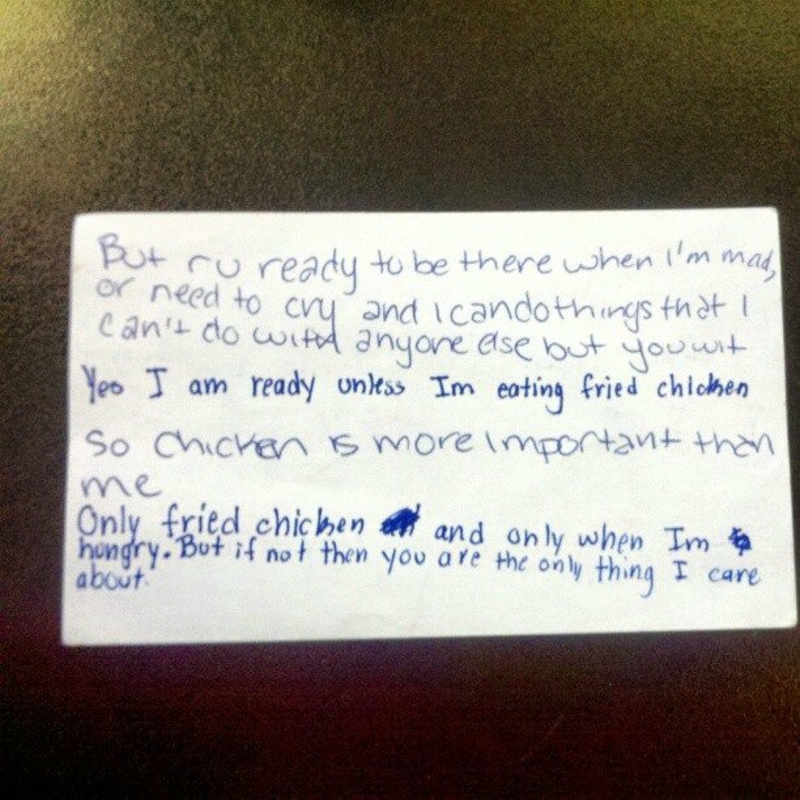 But r u ready to be there when I'm mad,
or need to cry and I can do things that I
can't do with anyone else but you wit
Yes I am ready unless Im eating fried chicken
So chicken is more important than
me
Only fried chicken and only when Im
hungry. But if not then you are the only thing I care
about.